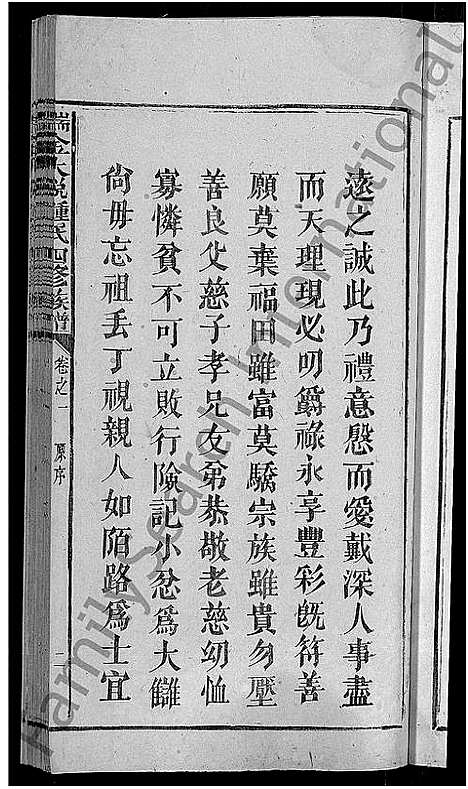 遠之誠此乃禮意慇而愛戴深人事盡
而天理現必叨爵祿永享豐彩既符善
願莫棄福田雖富莫驕宗族雖貴勿壓
善良父慈子孝兄友弟恭敬老慈幼恤
寡憐貧不可立敗行險記小忿爲大讎
尙毋忘祖丢丁視親人如陌路爲士宜
瑞金大説鍾氏四修族譜
卷之一 原序 二
FamilySearch International